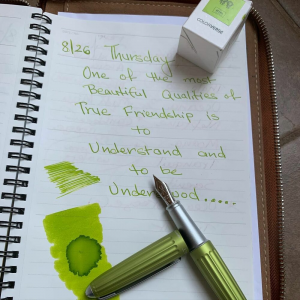 8/26 Thursday
One of the most
Beautiful Qualities of
True Friendship is
to
Understand and
to be
Understood.....